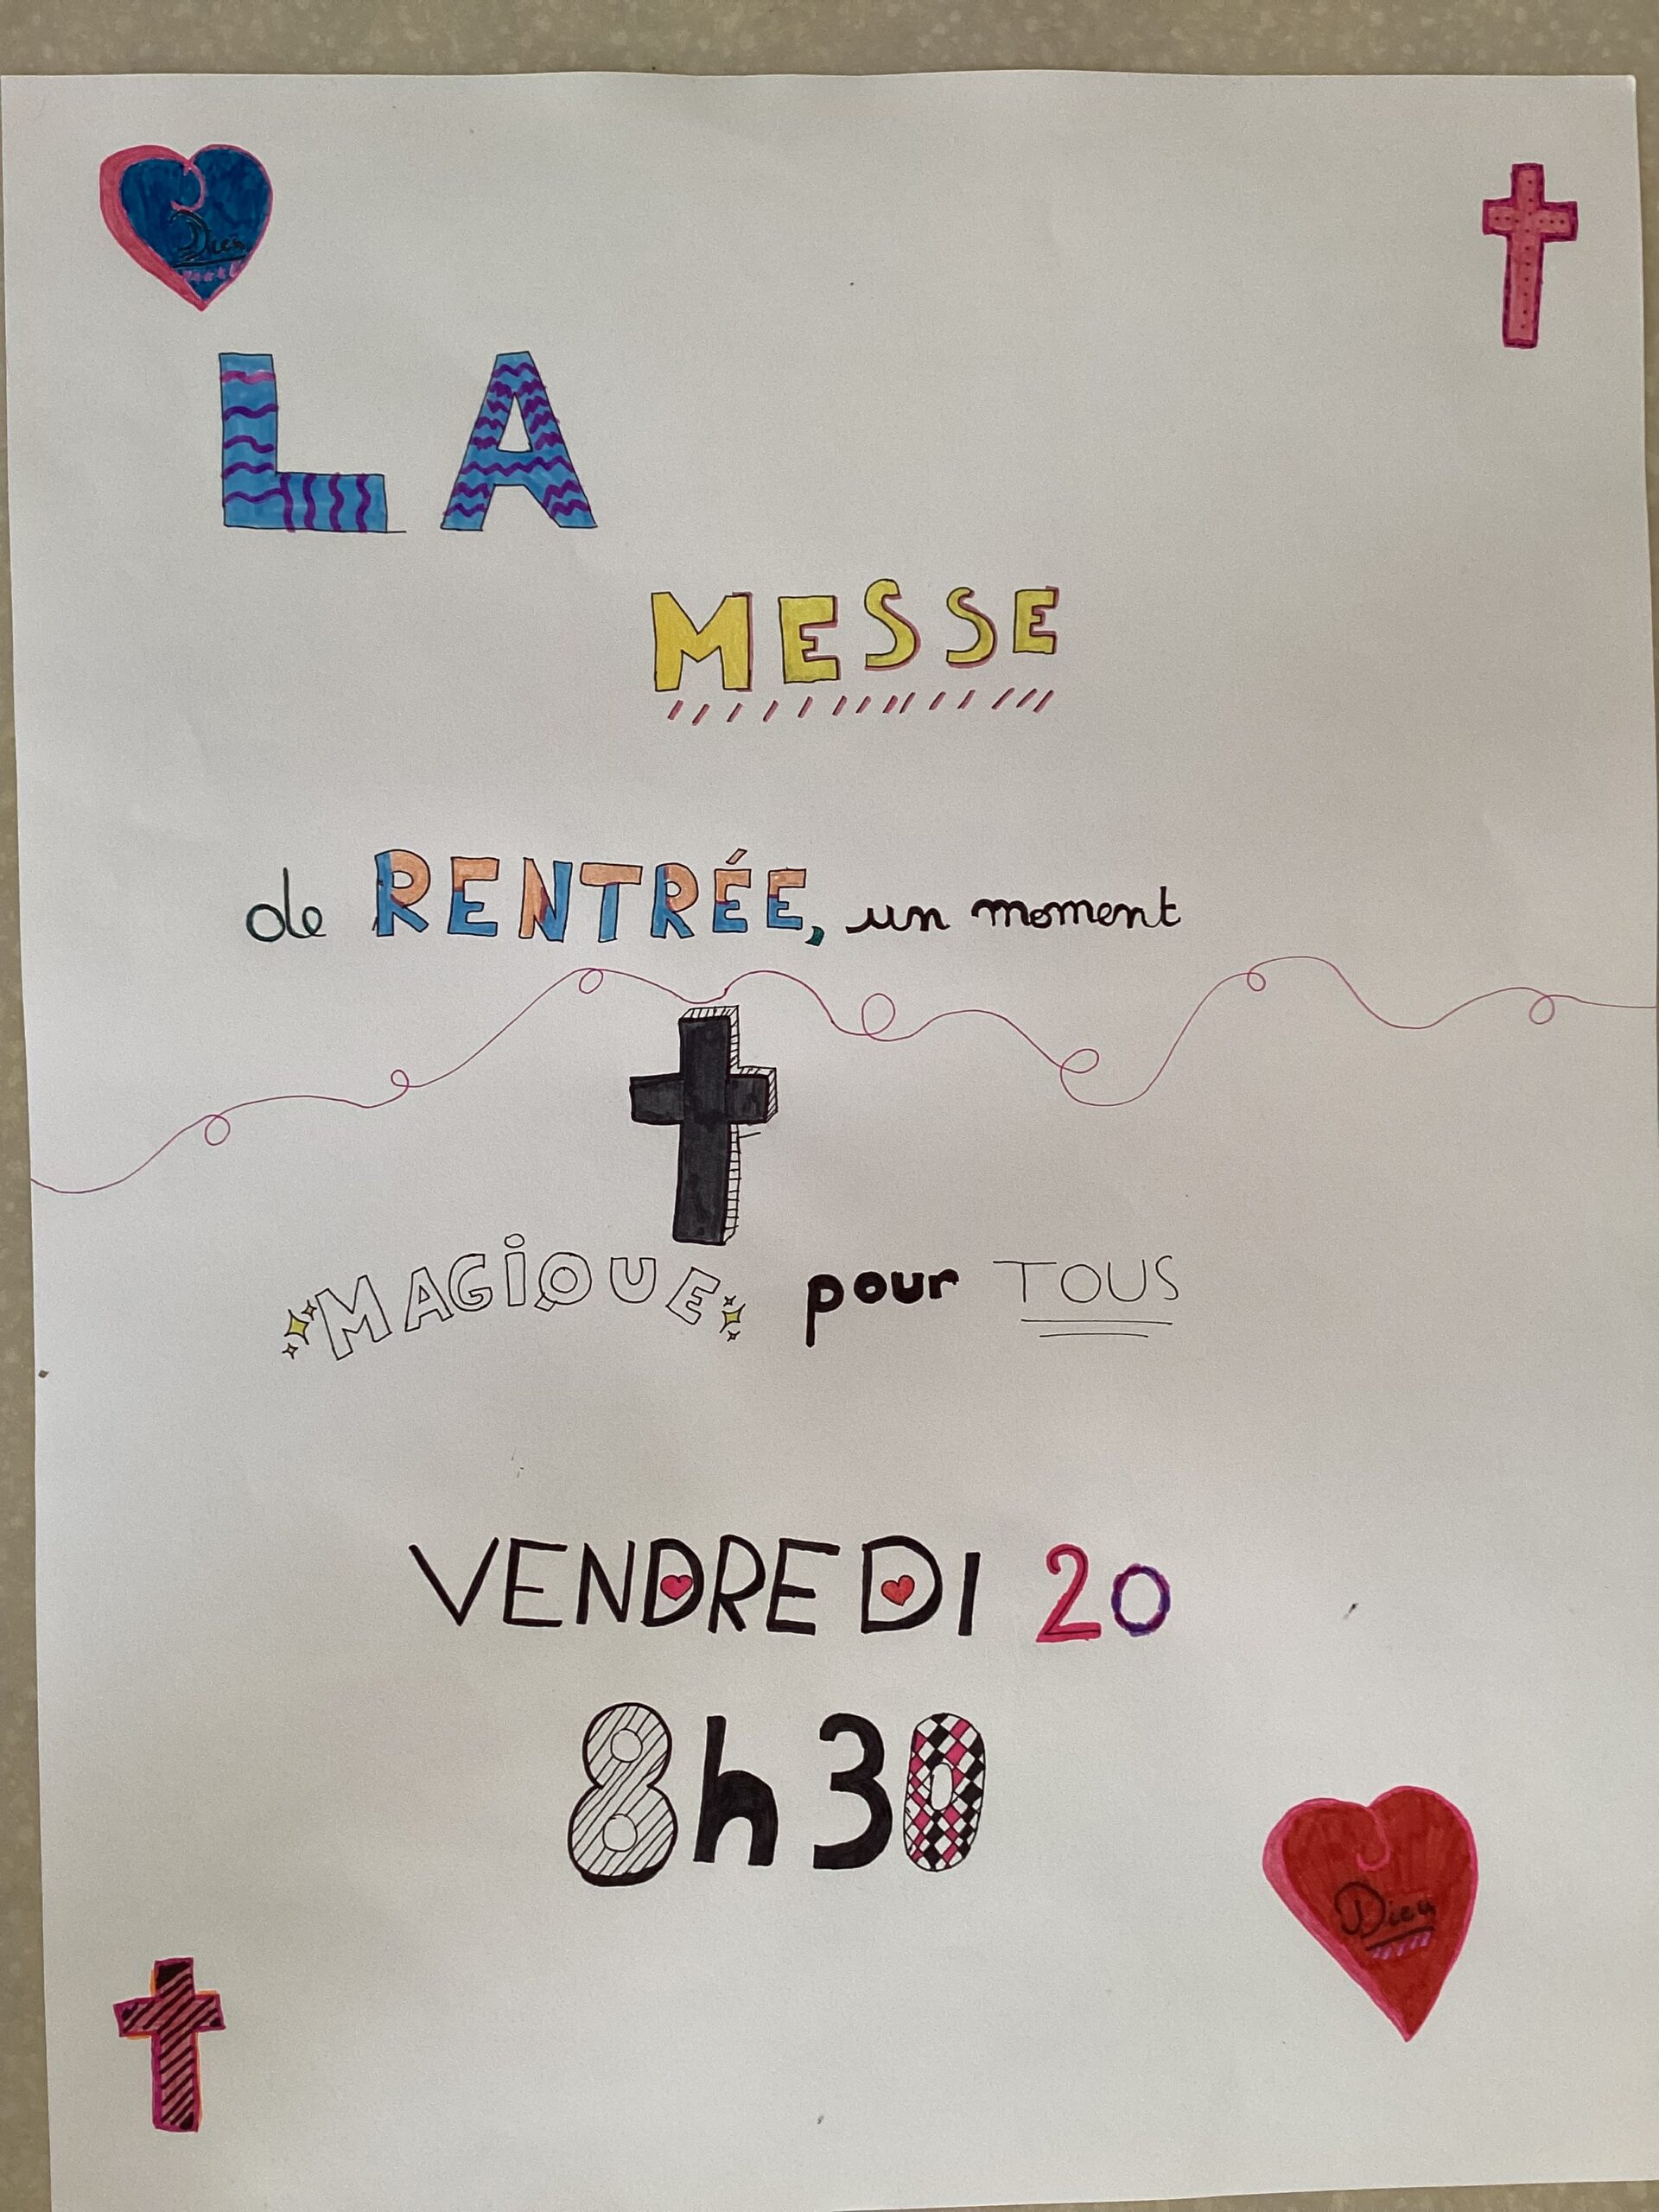 Dieu
LA
MESSE
de RENTRÉE, un moment
MAGiQUE pour TOUS
VENDREDI 20
8h30
Dieu